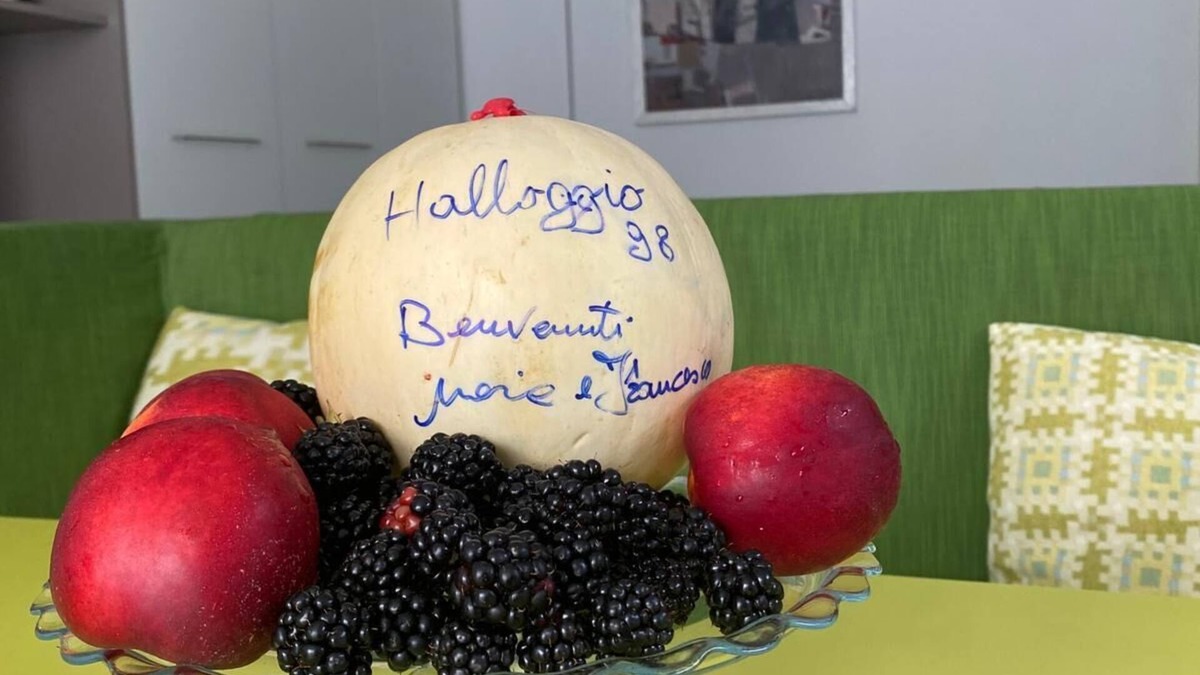 Halloggio
98
Benvenuti
e Francesco